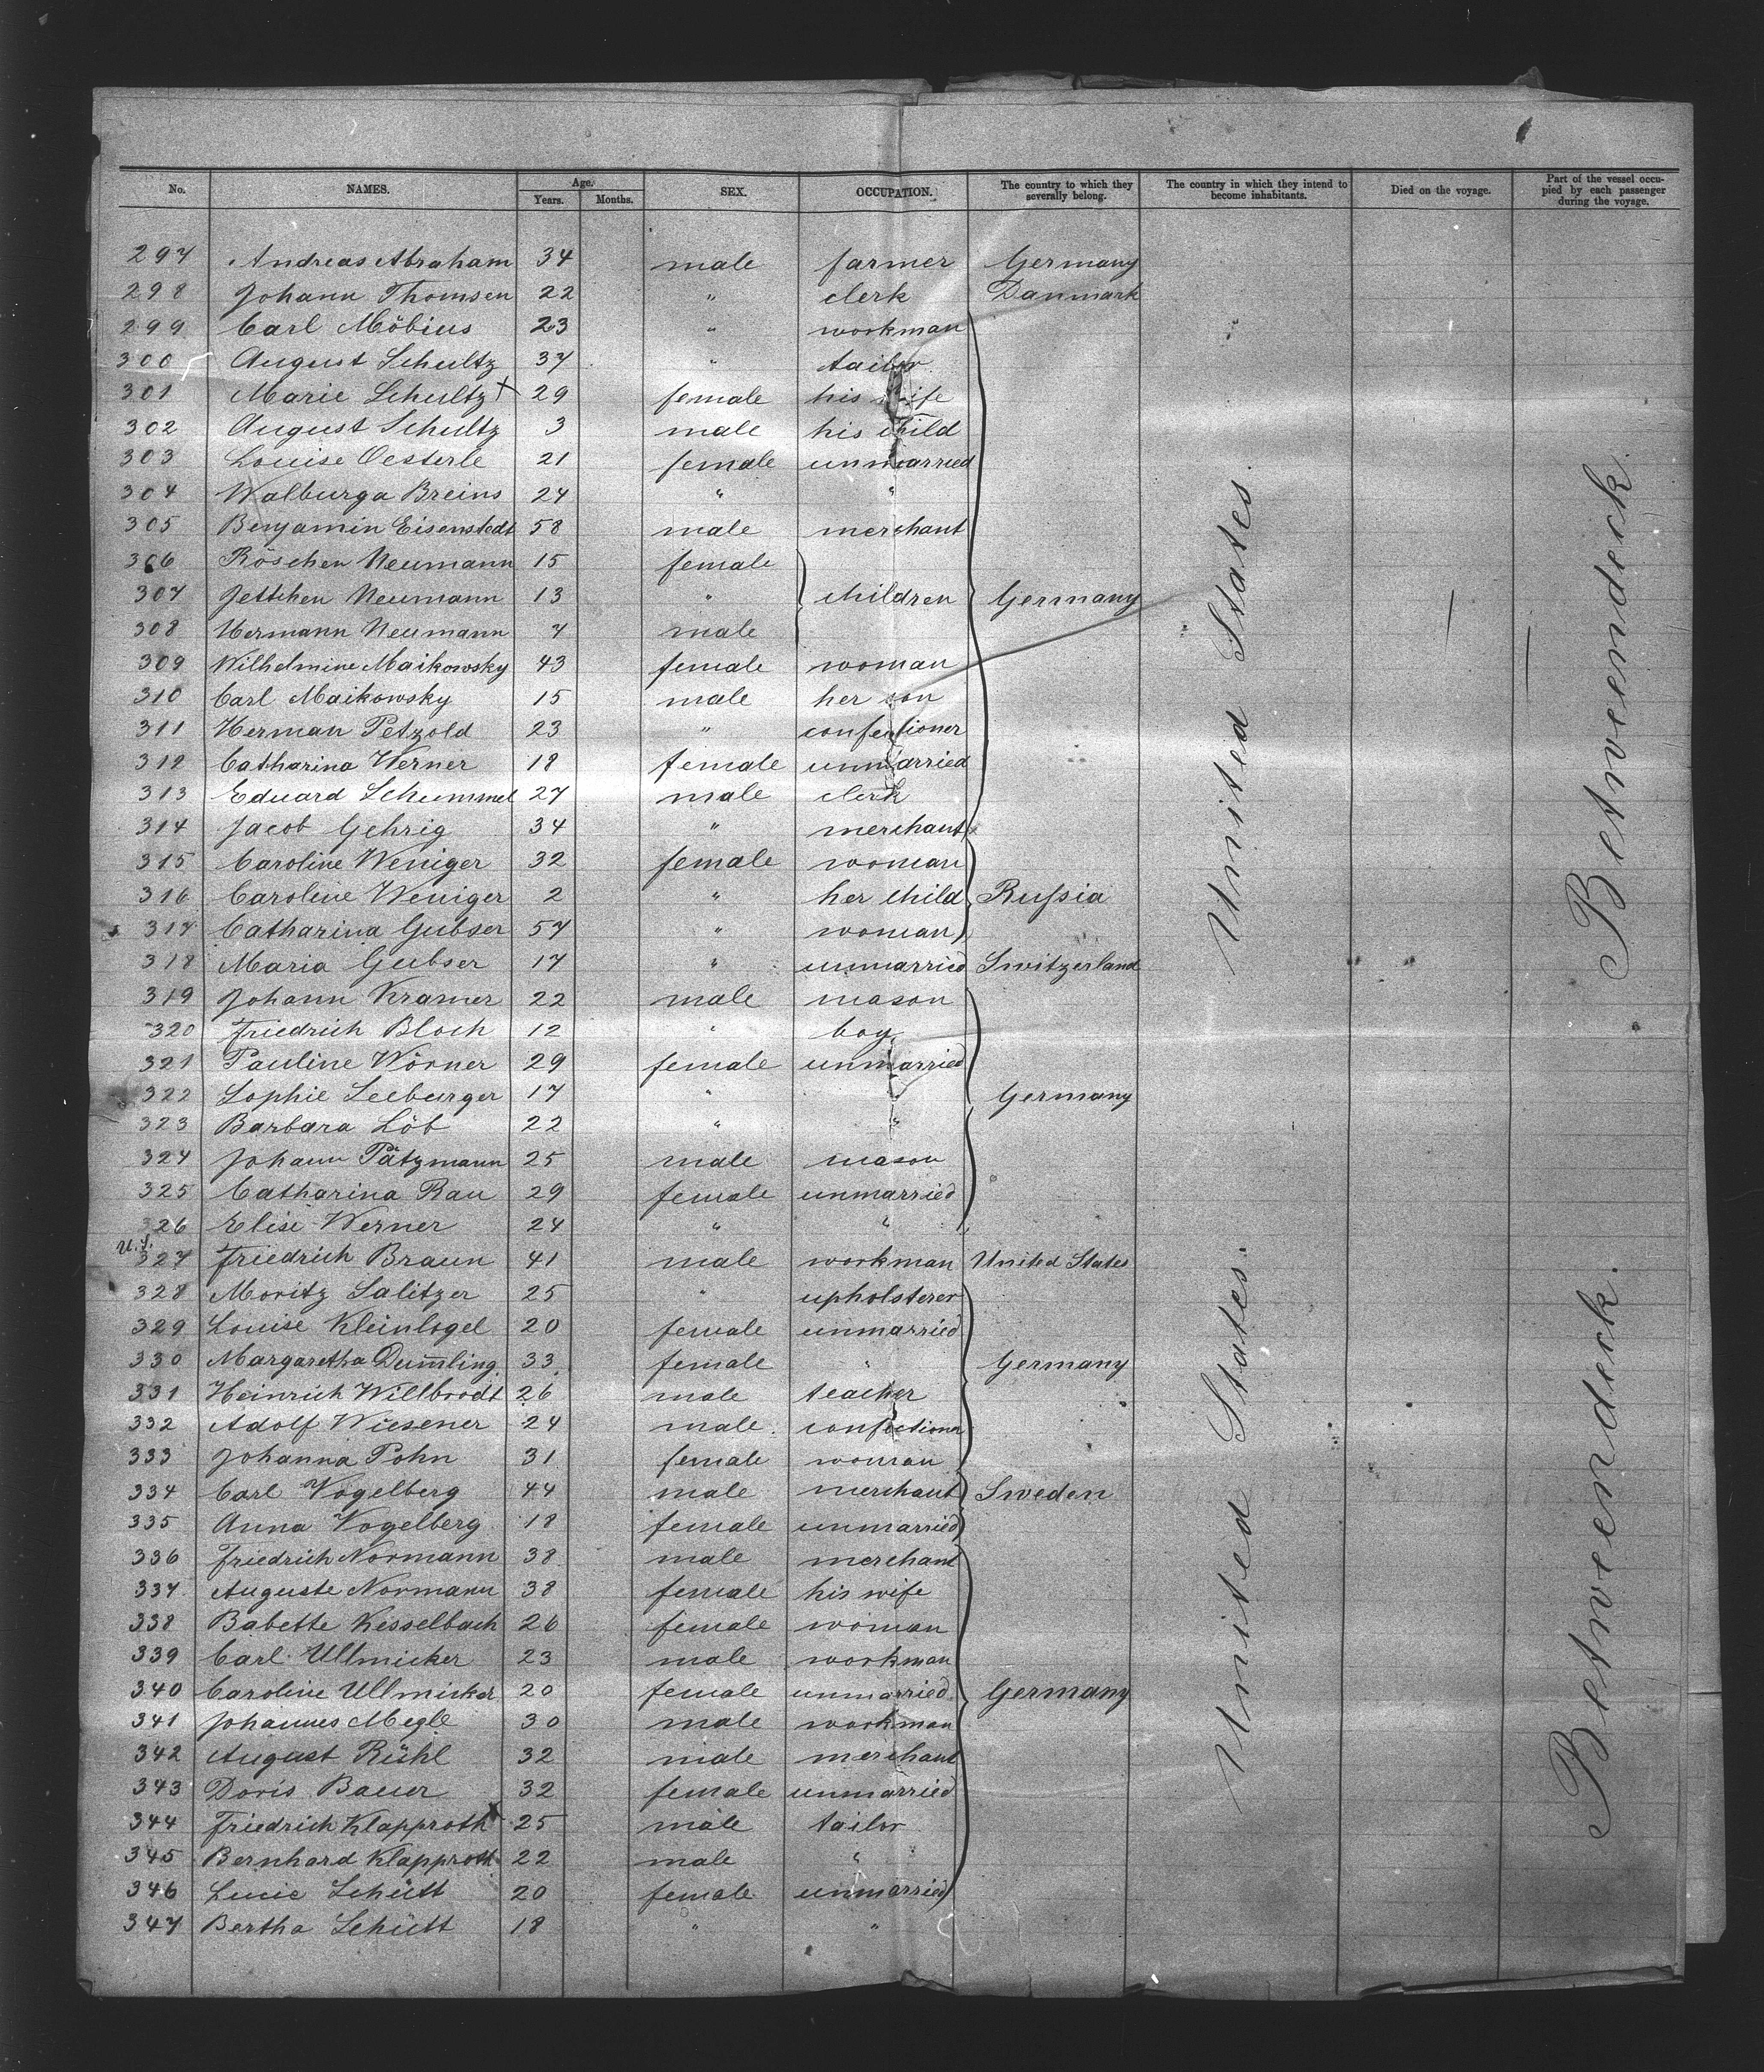 No. NAMES. Age. Years. Months. SEX. OCCUPATION. The country to which they severally belong. The country in which they intend to become inhabitants. Died on the voyage. Part of the vessel occupied by each passenger during the voyage.
297 Andreas Abraham 34 male farmer Germany
298 Johann Thomsen 22 " clerk Danmark
299 Carl Möbius 23 " workman
300 August Schultz 37 " tailor
301 Marie Schultz + 29 female his wife
302 August Schultz 3 male his child
303 Louise Oesterle 21 female unmarried
304 Walburga Breins 24 " "
305 Benjamin Eisenstedt 58 male merchant
306 Röschen Neumann 15 female
307 Jettchen Neumann 13 " children Germany
308 Hermann Neumann 7 male
309 Wilhelmine Maikowsky 43 female woman
310 Carl Maikowsky 15 male her son
311 Herman Petzold 23 " confectioner
312 Catharina Werner 18 female unmarried
313 Eduard Schummel 27 male clerk
314 Jacob Gehrig 34 " merchant
315 Caroline Weniger 32 female woman
316 Caroline Weniger 2 " her child Russia
317 Catharina Gubser 57 " woman
318 Maria Gubser 17 " unmarried Switzerland
319 Johann Kramer 22 male mason
320 Friedrich Bloch 12 " boy
321 Pauline Wörner 29 female unmarried
322 Sophie Seeburger 17 " Germany
323 Barbara Löb 22 " "
324 Johann Pätzmann 25 male mason
325 Catharina Rau 29 female unmarried
326 Elise Werner 24 " "
U.S. 327 Friedrich Braun 41 male workman United States
328 Moritz Salitzer 25 " upholsterer
329 Louise Kleinlogel 20 female unmarried
330 Margaretha Dum̅ling 33 female " Germany
331 Heinrich Willbrodt 26 male teacher
332 Adolf Wiesener 24 male confectioner
333 Johanna Pohn 31 female woman
334 Carl Vogelberg 44 male merchant Sweden
335 Anna Vogelberg 18 female unmarried
336 Friedrich Normann 38 male merchant
337 Auguste Normann 38 female his wife
338 Babette Kesselbach 26 female woman
339 Carl Ullmicker 23 male workman
340 Caroline Ullmicker 20 female unmarried Germany
341 Johannes Megle 30 male workman
342 August Rühl 32 male merchant
343 Doris Bauer 32 female unmarried
344 Friedrich Klapproth 25 male tailor
345 Bernhard Klapproth 22 male "
346 Lucie Schütt 20 female unmarried
347 Bertha Schütt 18 " "
United States.
United States.
Betweendeck.
Betweendeck.